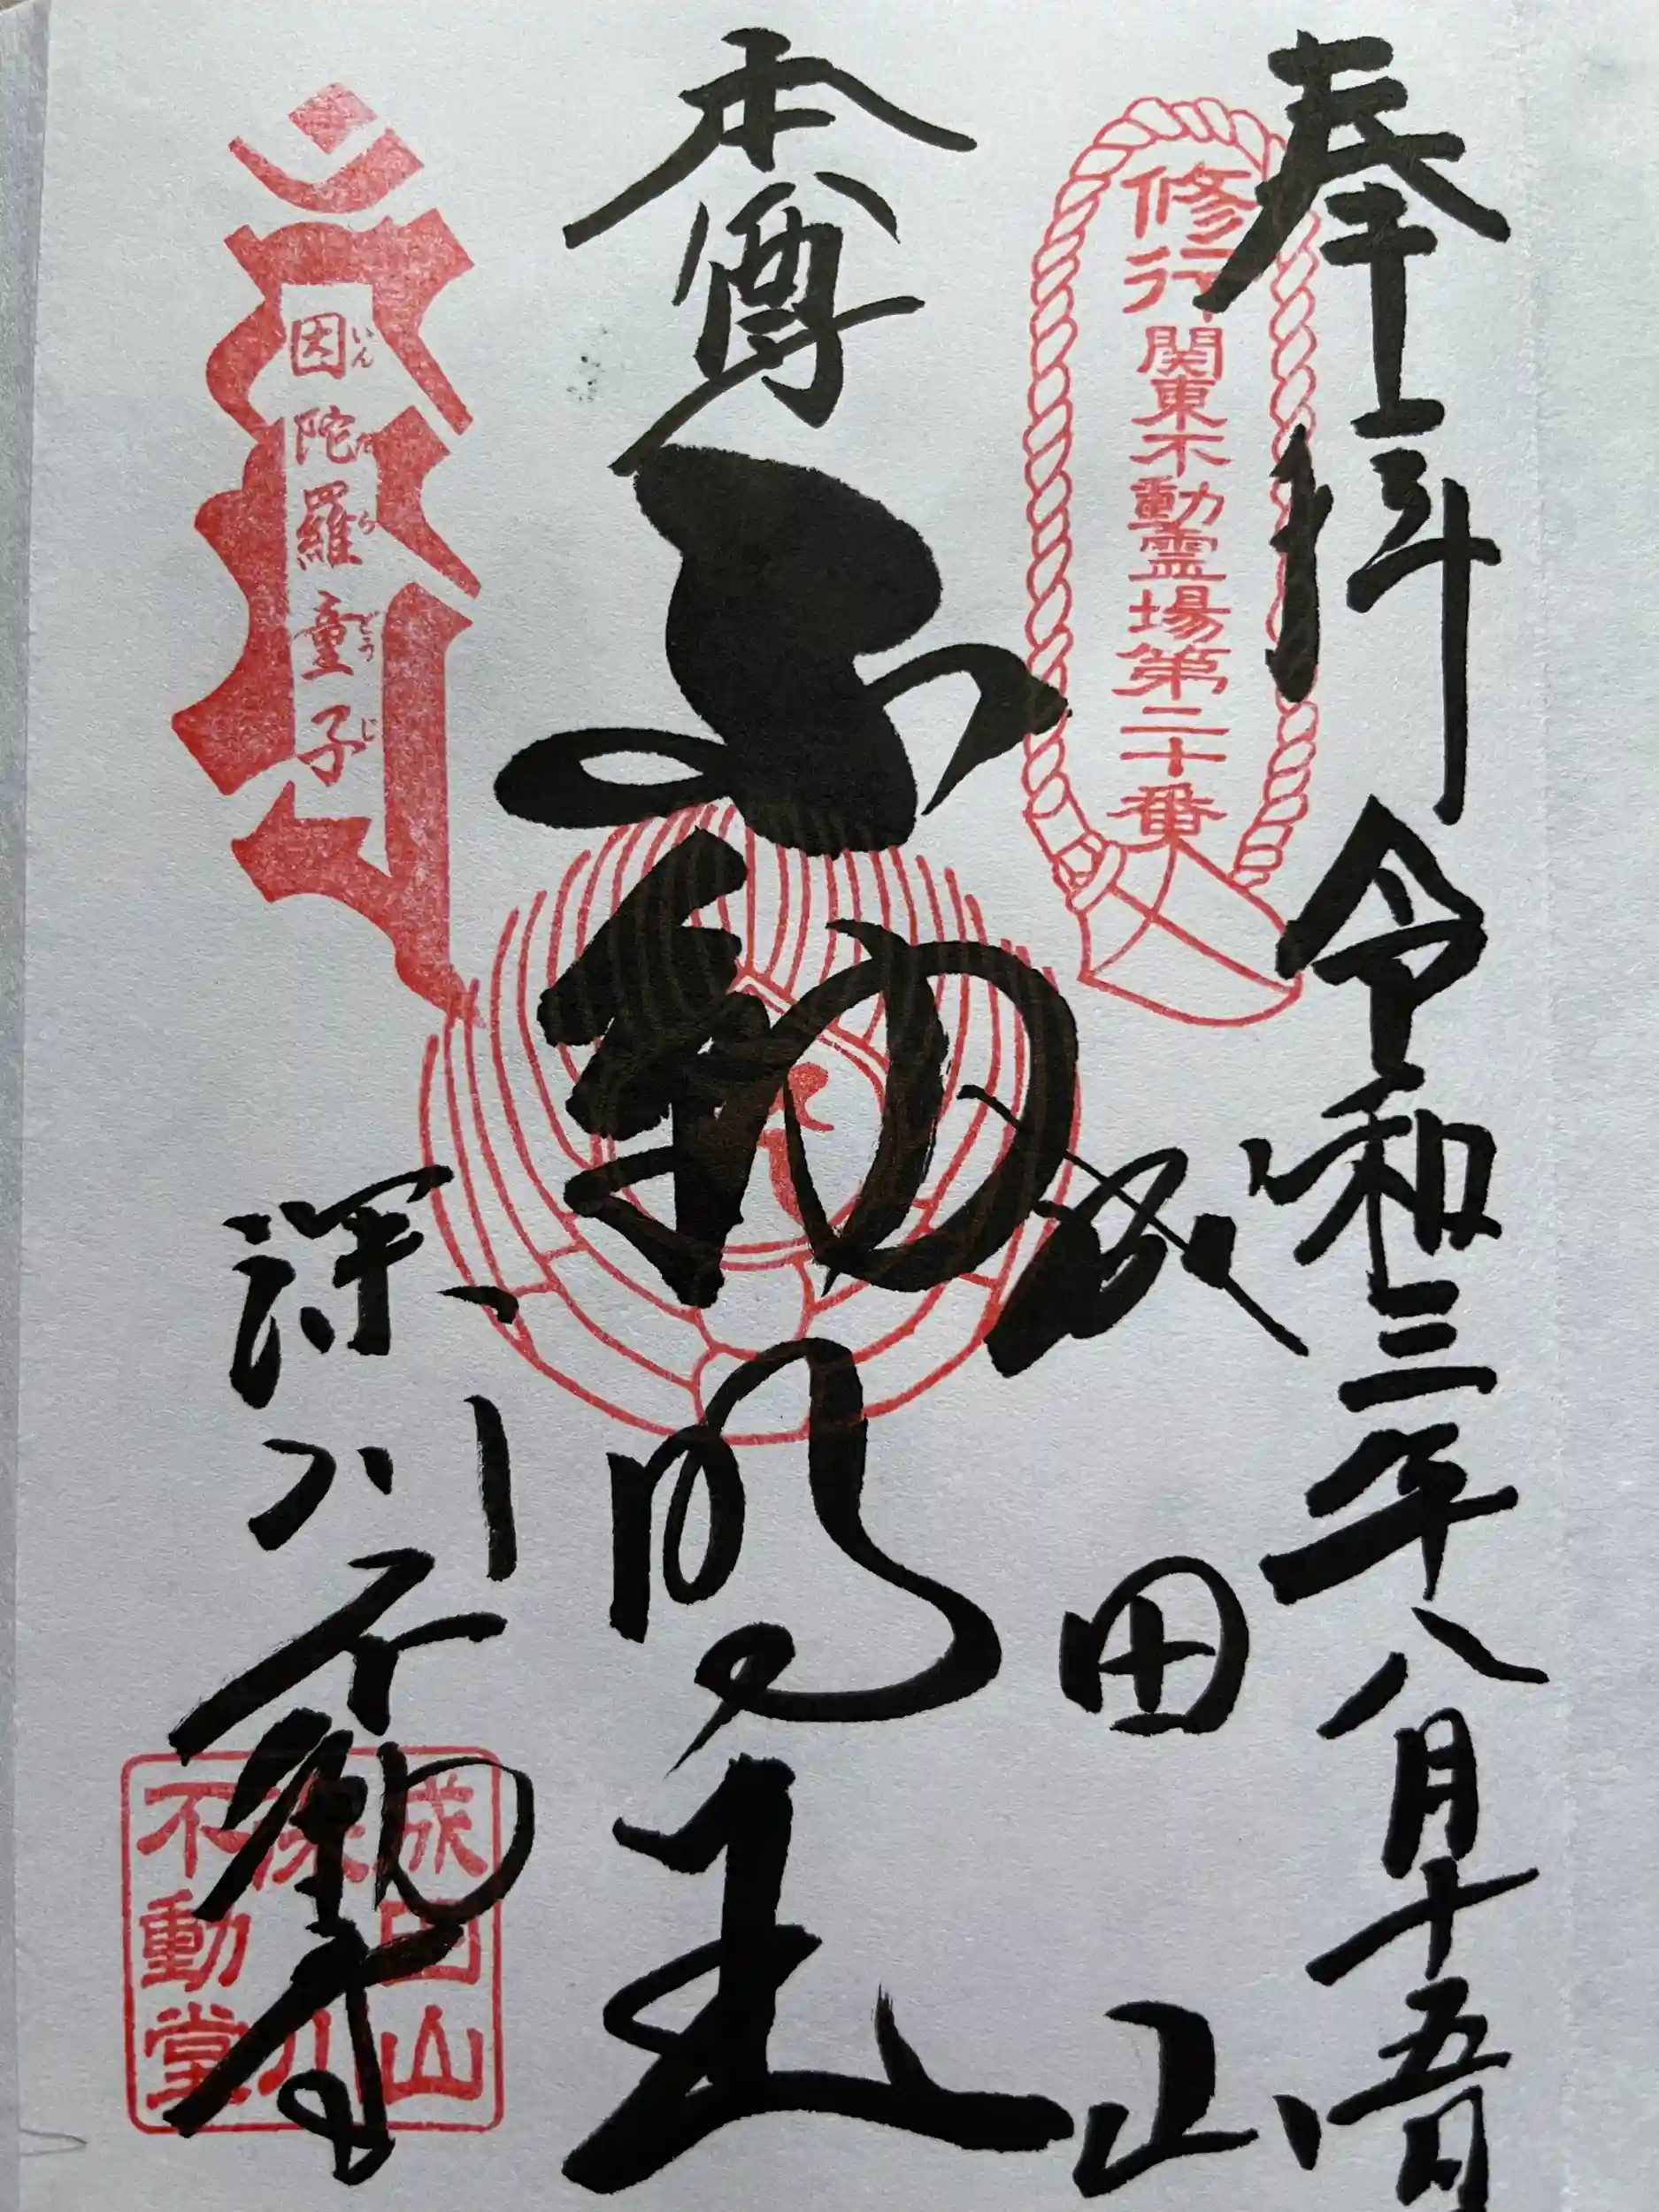 奉拝 令和三年八月十五日
修行 関東不動霊場第二十番
成田山
本尊 不動明王
因陀羅童子
いんだらどうじ
深川不動尊
成田山
深川
不動堂